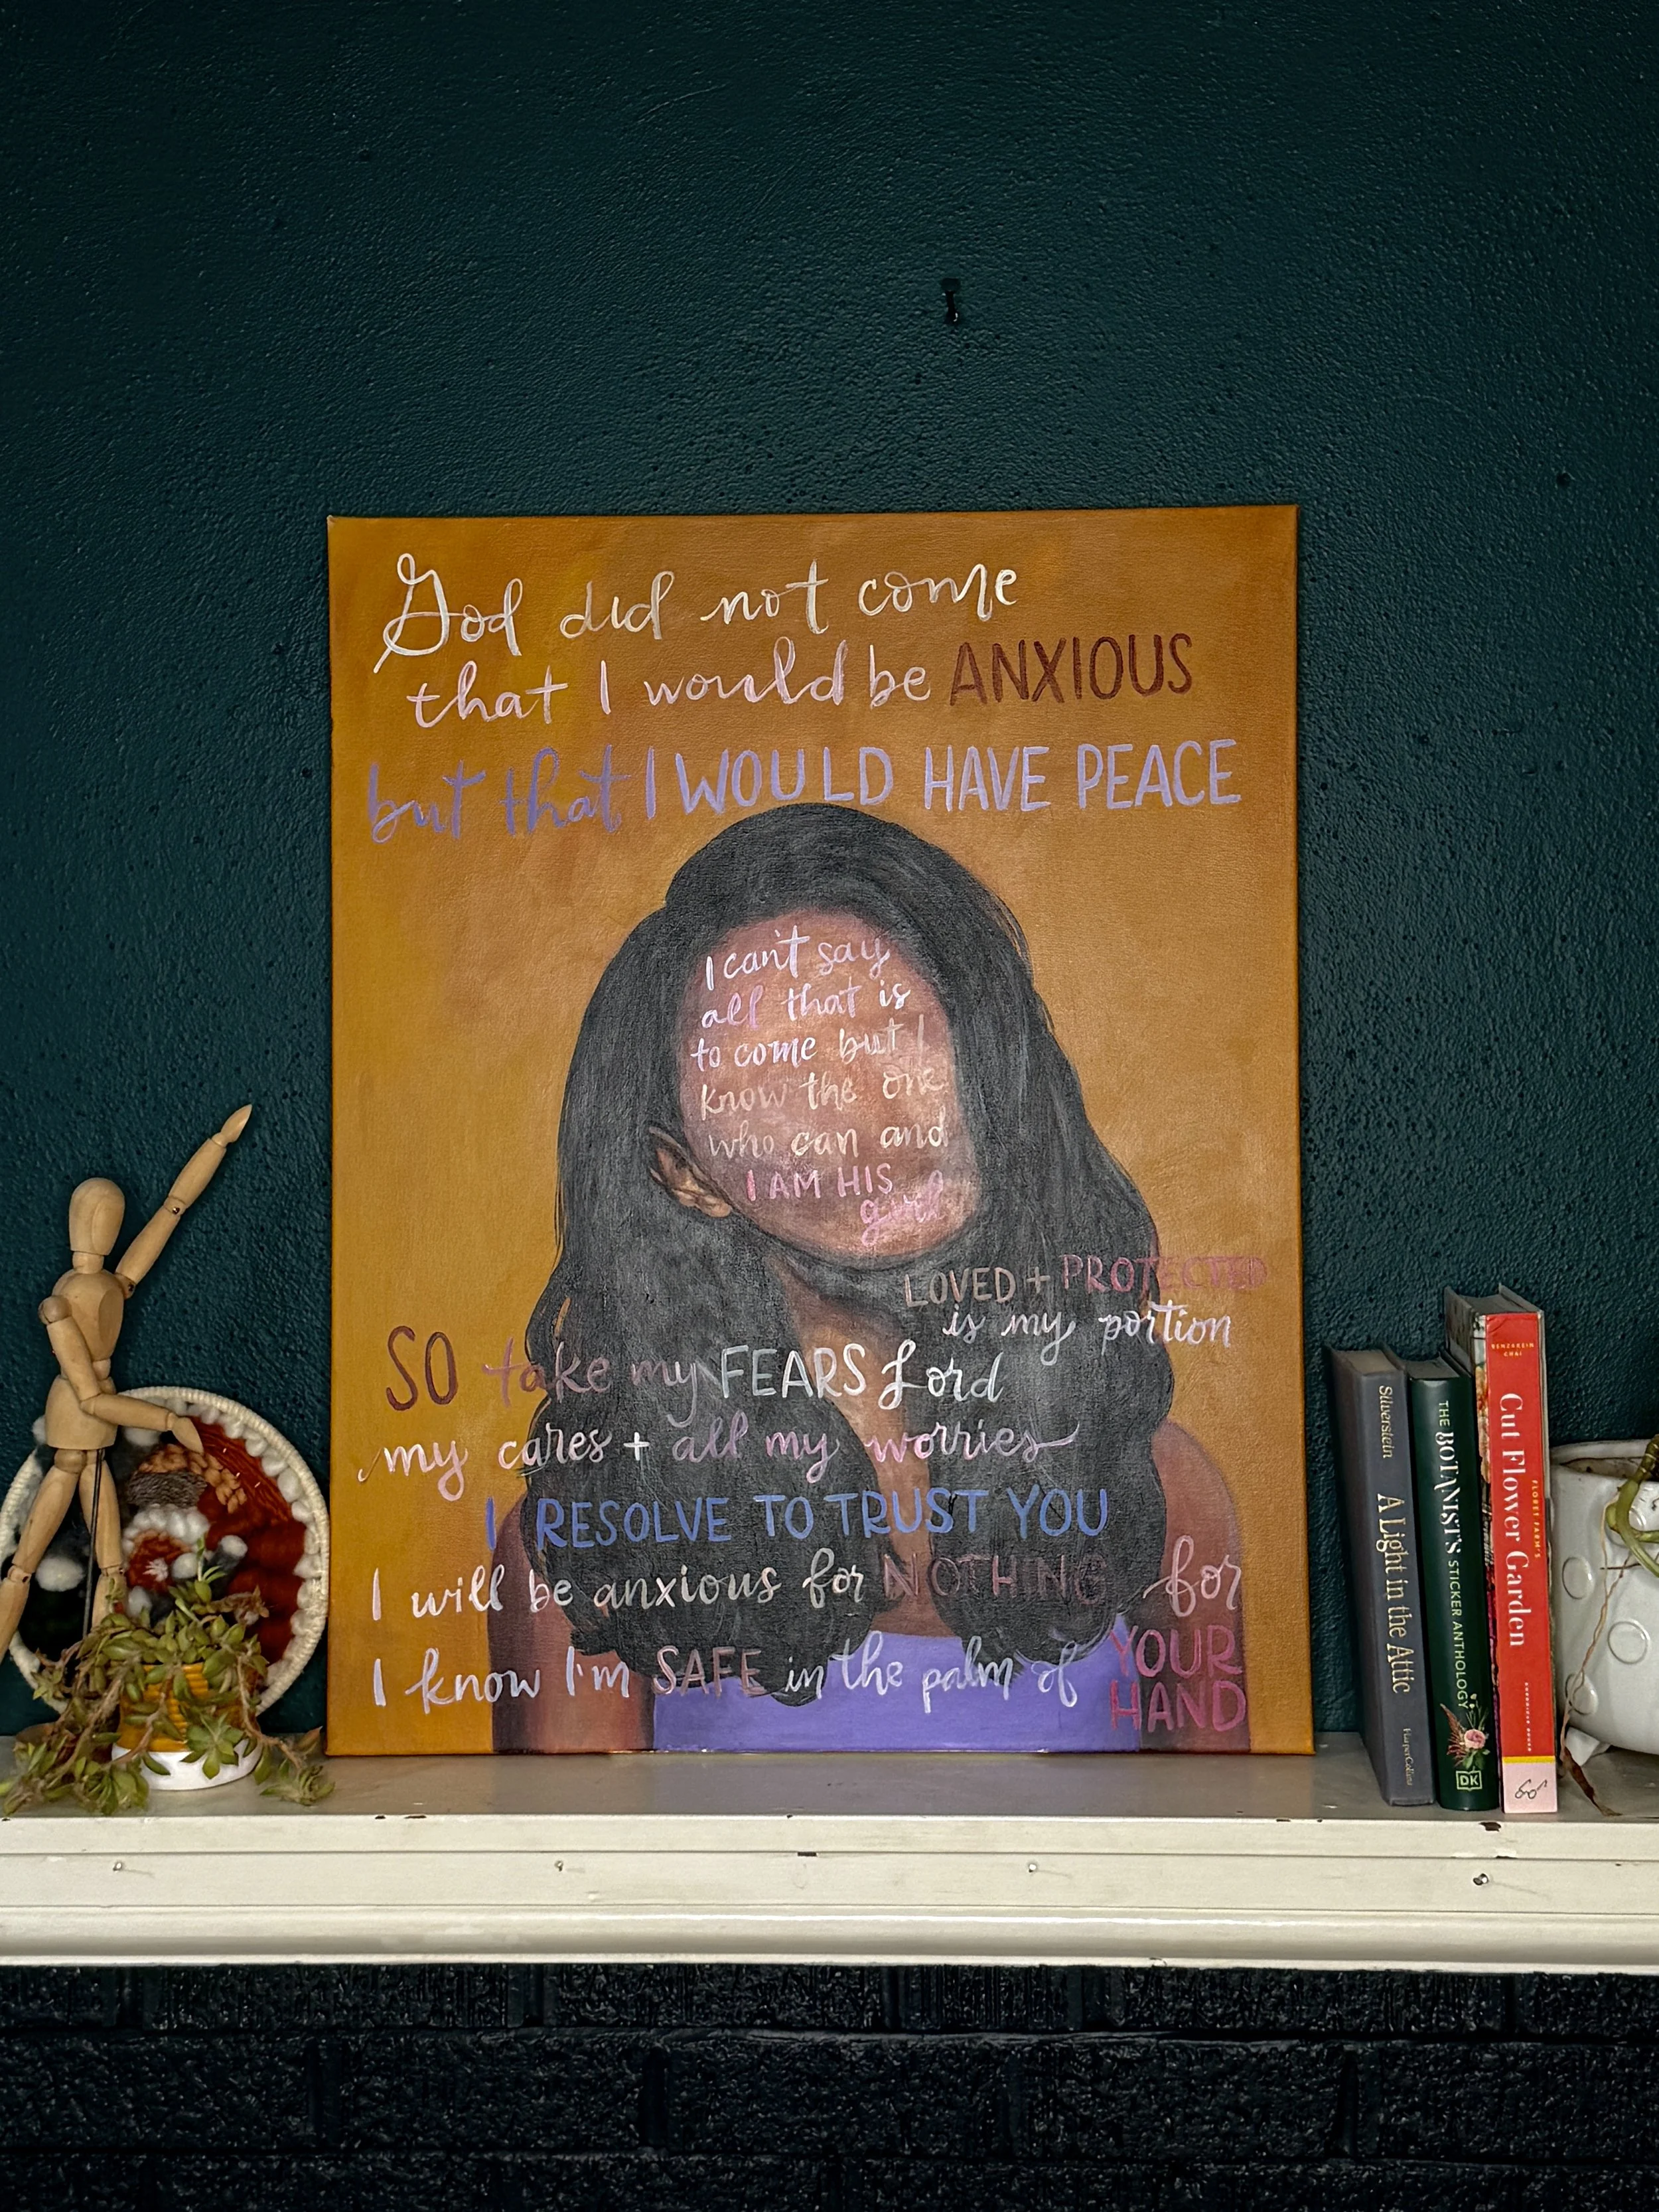 God did not come
that I would be ANXIOUS
but that I WOULD HAVE PEACE
I can't say
all that is
to come but I
know the one
who can and
I AM HIS
girl
LOVED + PROTECTED
is my portion
SO take my FEARS Lord
my cares + all my worries
I RESOLVE TO TRUST YOU
I will be anxious for NOTHING for
I know I'm SAFE in the palm of YOUR
HAND
Silverstein A Light in the Attic HarperCollins
THE BOTANIST'S STICKER ANTHOLOGY
DK
BENZAKEIN
CHAI
FLORET FARM'S
Cut Flower Garden